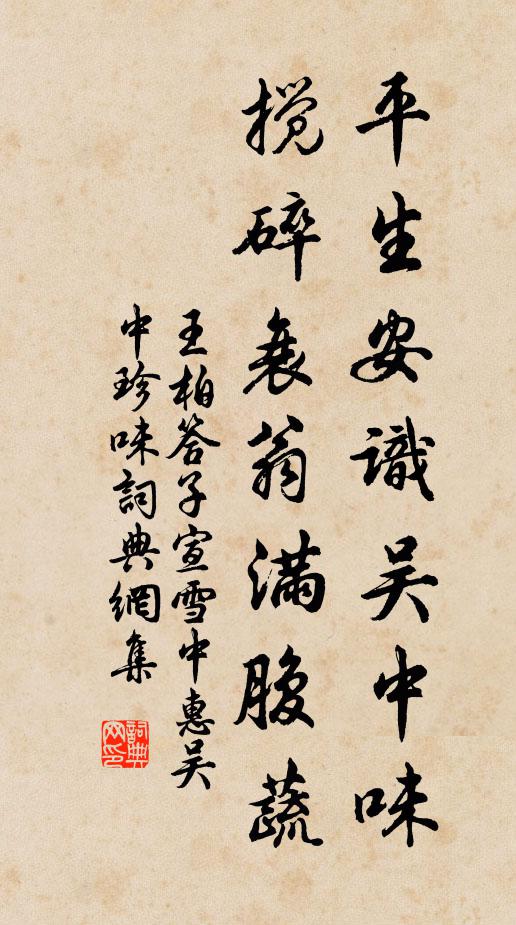 平生安識吴中味
攪碎衰翁滿腹蔬
王柏答子宣雪中惠吴
中珍味詞典網集
詞典网印